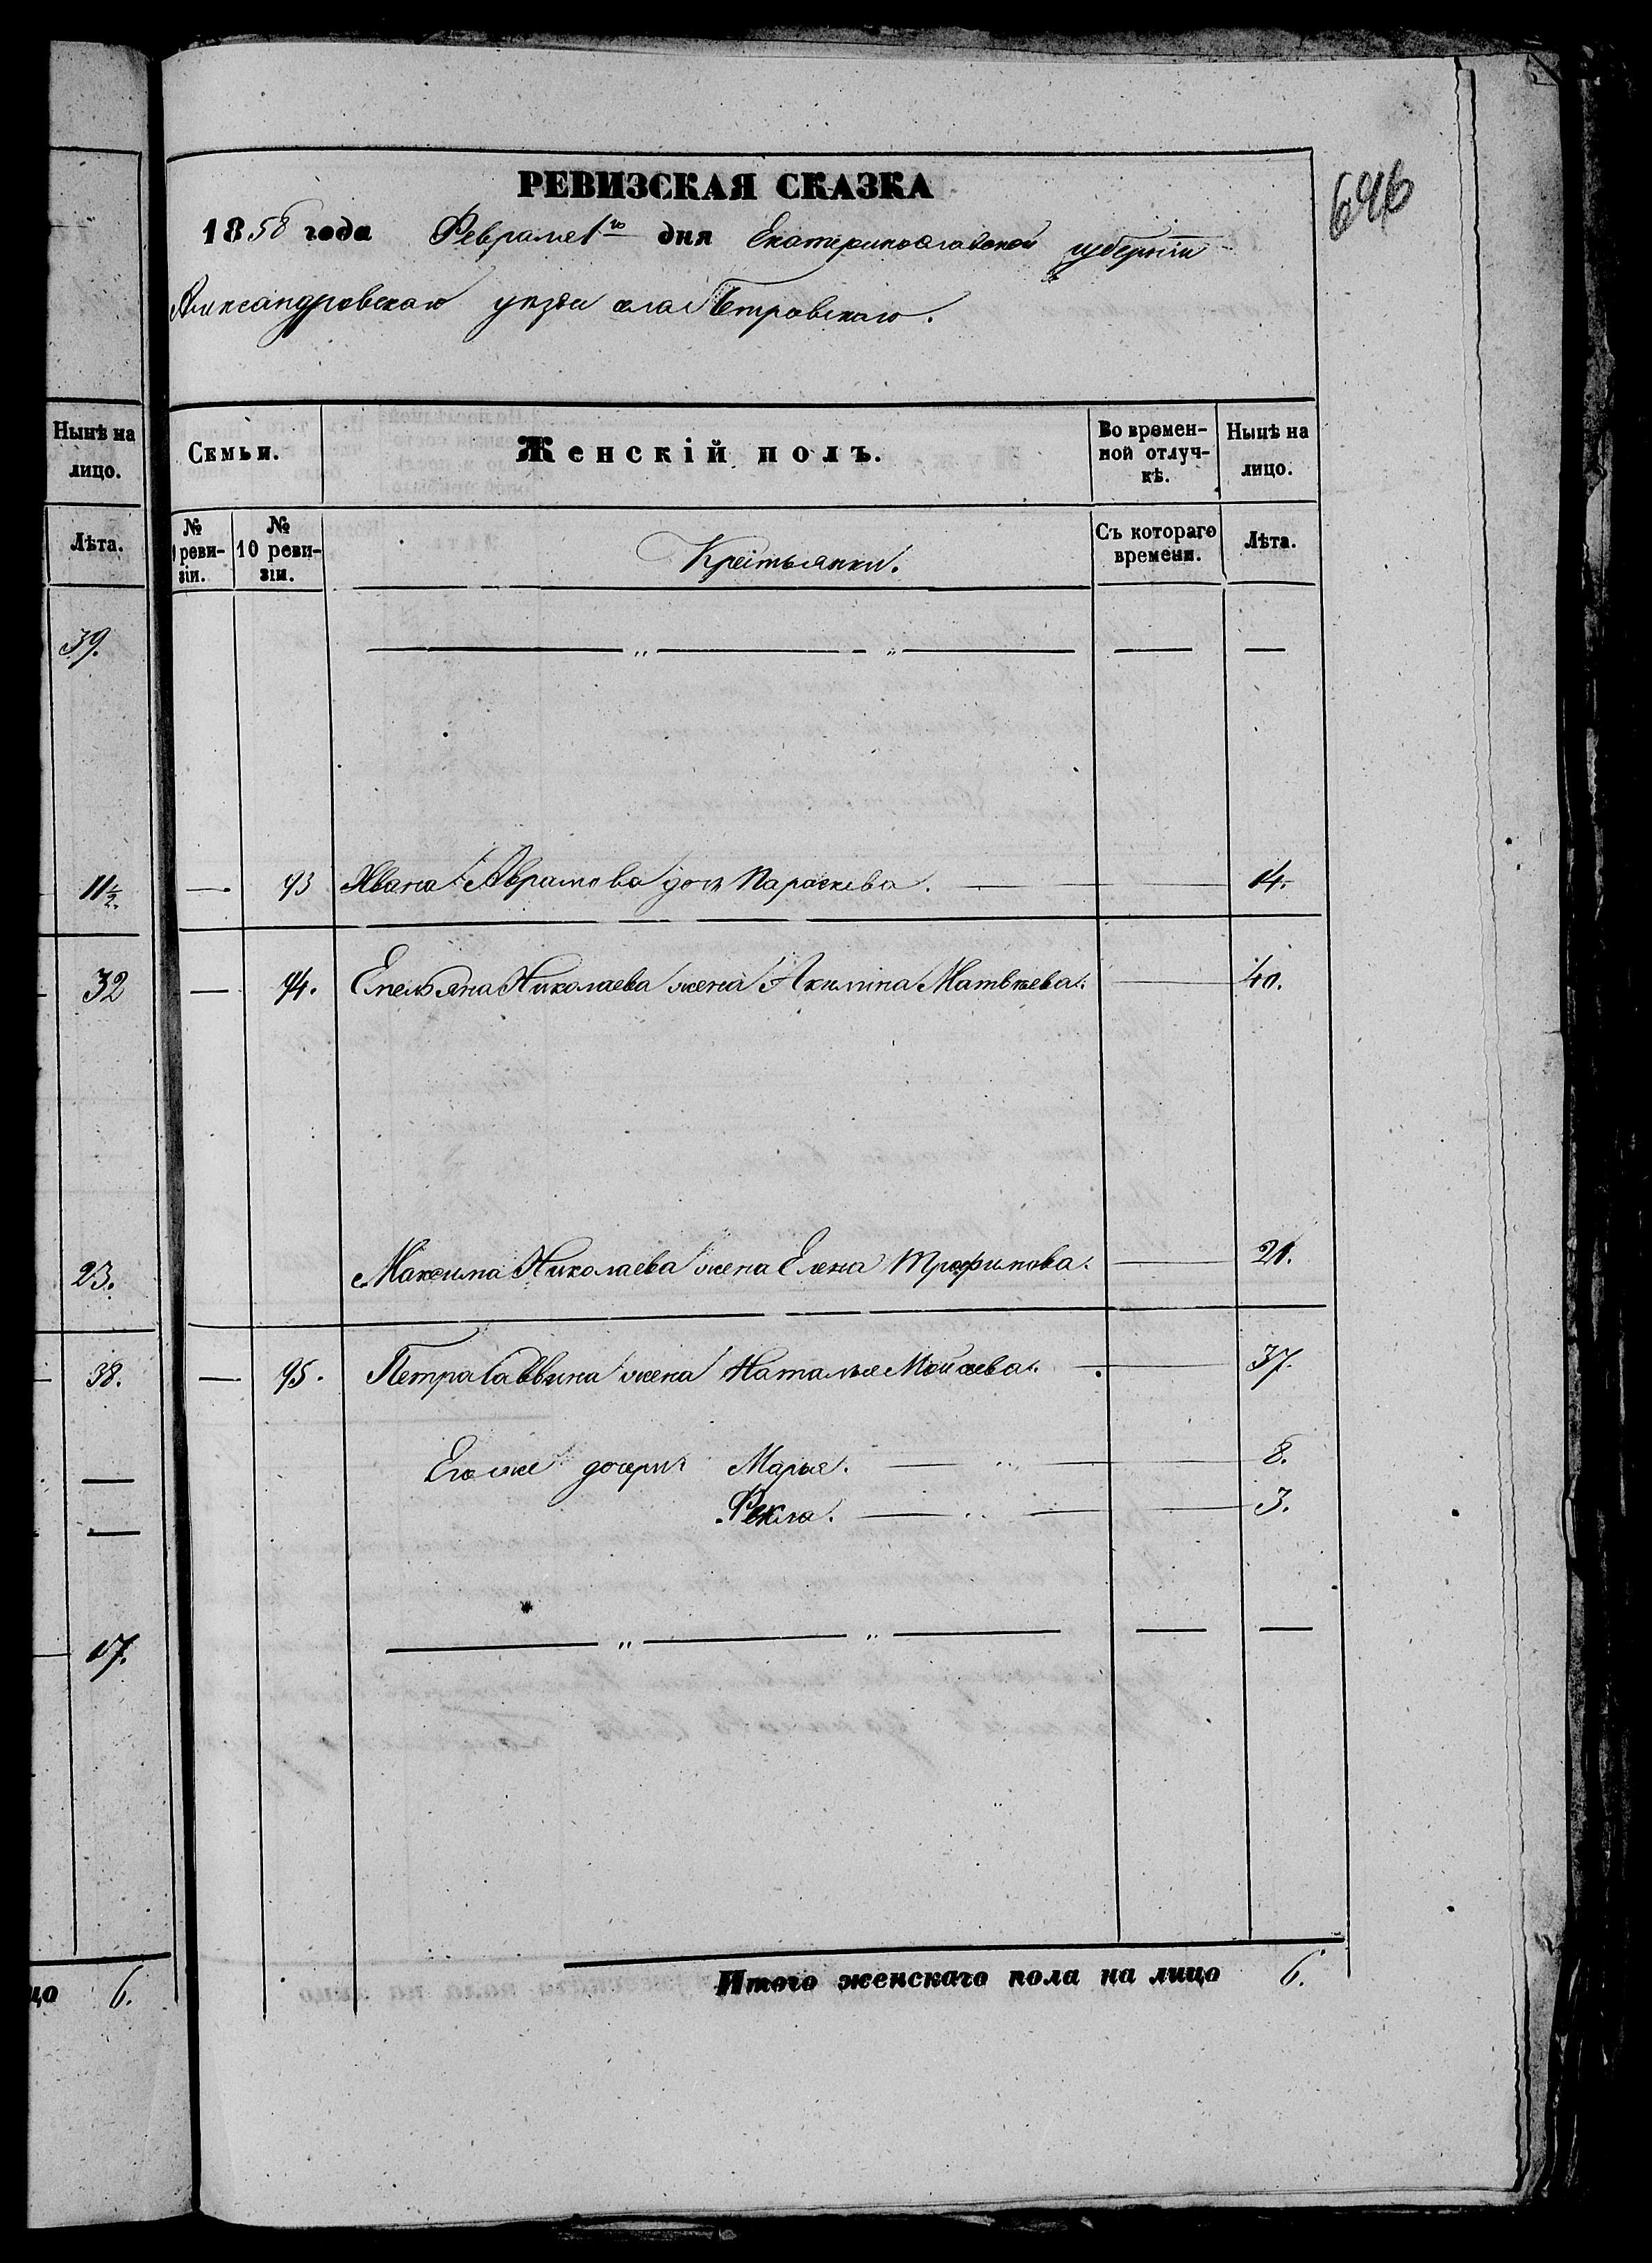 646
РЕВИЗСКАЯ СКАЗКА
1858 года Февраля 1го дня Екатеринославской губерніи
Александровскаго уѣзда села Петровскаго.
Нынѣ на лицо.
Лѣта.
39.
11½.
32
23.
38.
17.
цо 6.
Семьи.
Женскій полъ.
Во времен-
ной отлуч-
кѣ.
Нынѣ на
лицо.
№ реви-
зіи.
№ 10 реви-
зіи.
Крестьянки.
Съ котораго
времени.
Лѣта.
— 93 Ивана Абрамова дочь Параскева. — 14.
— 94. Емельяна Николаева жена Акилина Матвѣева. — 40.
Максима Николаева жена Елена Трофимова. — 21.
— 95. Петра Саввина жена Наталья Мойсеева. — 37.
Его же дочери Марья. — 8.
Фекла. — 3.
Итого женскаго пола на лицо 6.